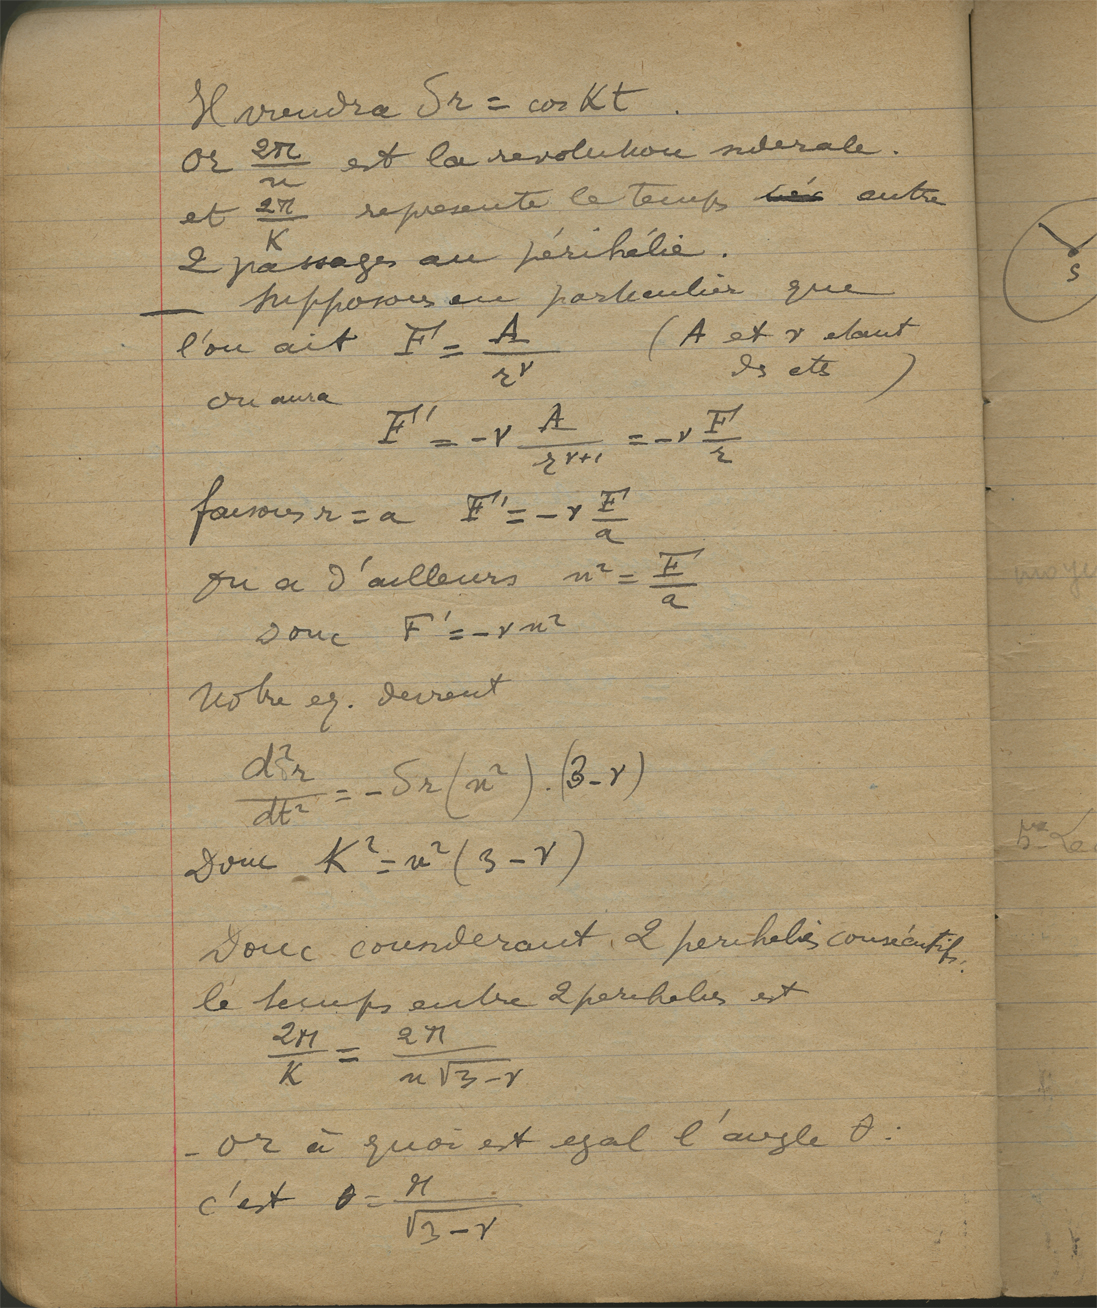 Il viendra δr = cos Kt.
Or 2π/n est la revolution siderale.
et 2π/K represente le temps entre
2 passages au périhélie.
— Supposons en particulier que
l'on ait F = A/r^ν (A et ν etant
des ctes)
on aura
F' = -ν A/r^(ν+1) = -ν F/r
faisons r = a F' = -ν F/a
On a d'ailleurs n² = F/a
Donc F' = -νn²
Notre eq. devient
d²δr/dt² = -δr(n²).(3-ν)
Donc K² = n²(3-ν)
Donc considerant 2 perihelies consécutifs.
le temps entre 2 perihelies est
2π/K = 2π/n√3-ν
- Or à quoi est egal l'angle θ :
c'est θ = π/√3-ν
S
moy